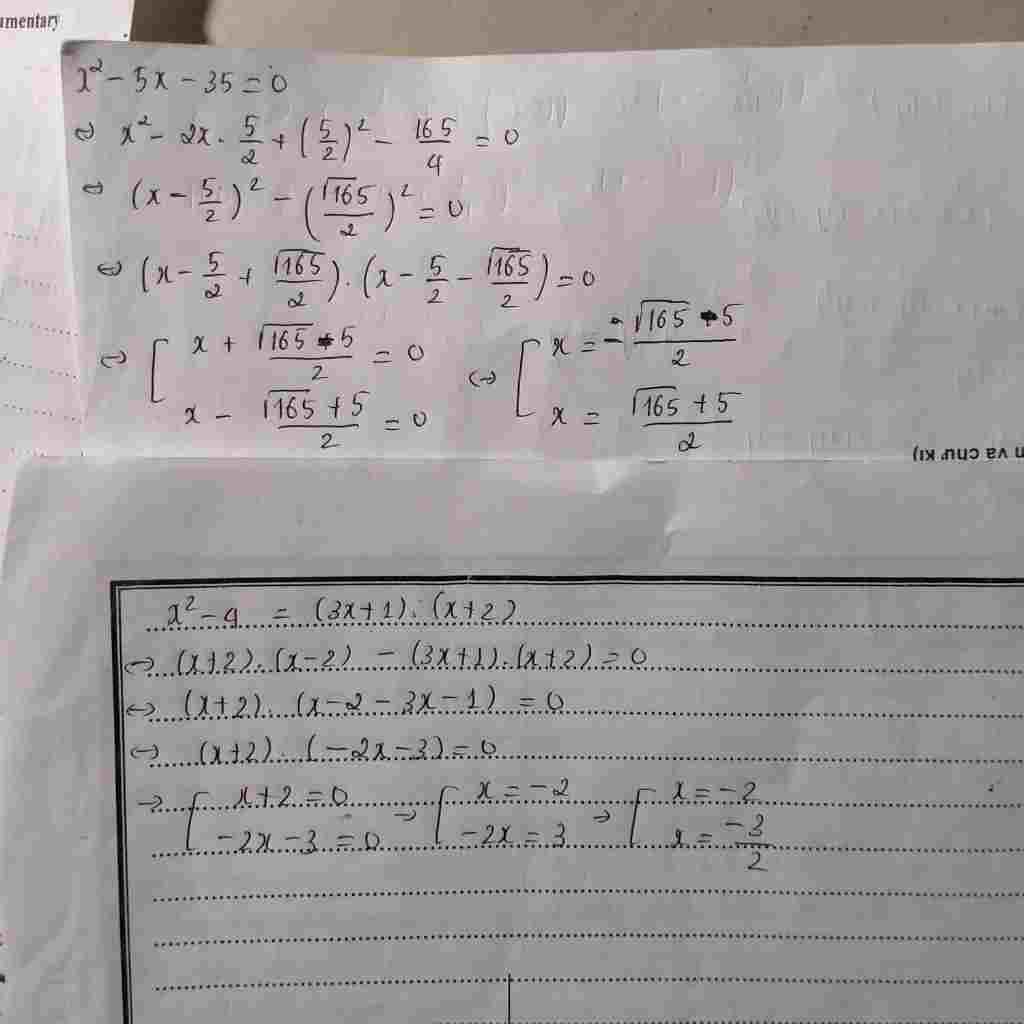 umentary
x² - 5x - 35 = 0
⇔ x² - 2x . 5/2 + (5/2)² - 165/4 = 0
⇔ (x - 5/2)² - (√165/2)² = 0
⇔ (x - 5/2 + √165/2) . (x - 5/2 - √165/2) = 0
⇔ [ x + (√165 - 5)/2 = 0 ⇔ [ x = -(√165 - 5)/2
x - (√165 + 5)/2 = 0 x = (√165 + 5)/2
va chu ki)
x² - 4 = (3x+1).(x+2)
⇔ (x+2).(x-2) - (3x+1).(x+2) = 0
⇔ (x+2). (x-2-3x-1) = 0
⇔ (x+2). (-2x-3) = 0
→ [ x+2=0 → [ x=-2 → [ x=-2
-2x-3=0 -2x=3 x=-3/2